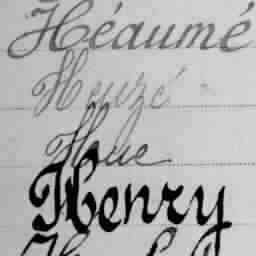 Héaumé
Heuzé
Houe
Henry